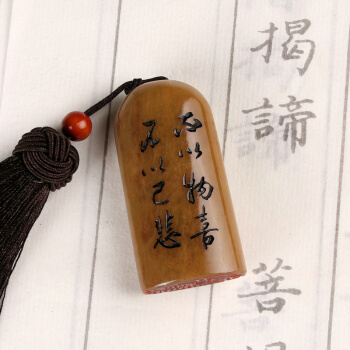 不以物喜
不以己悲
揭諦
菩